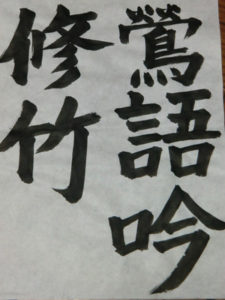 鶯語吟
修竹